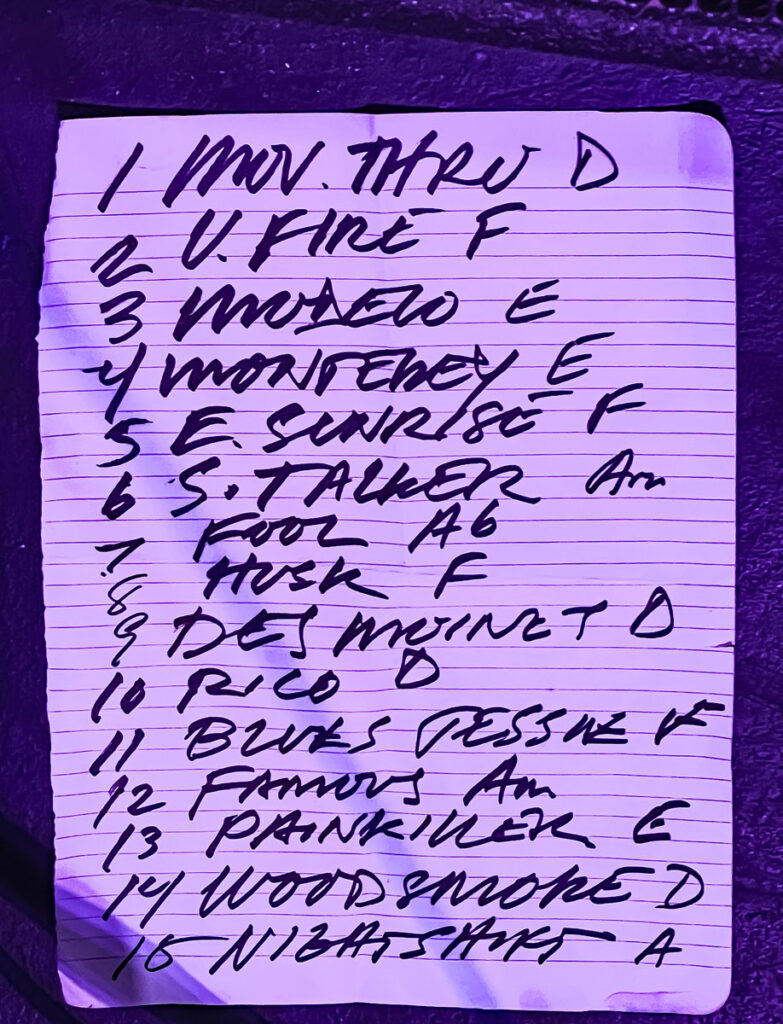 1 MOV. THRU D
2 V. FIRE F
3 MODELO E
4 MONTEREY E
5 E. SUNRISE F
6 S. TALKER Am
7. FOOL Ab
8 HUSK F
9 DES MOINES D
10 RICO D
11 BLUES JESSIE F
12 FAMOUS Am
13 PAINKILLER E
14 WOODSMOKE D
15 NIGHTSHIFT A